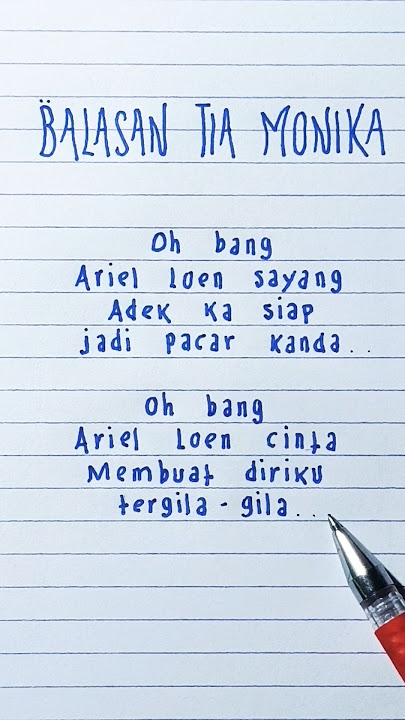 BALASAN TIA MONIKA
Oh bang
Ariel loen sayang
Adek ka siap
jadi pacar kanda..
Oh bang
Ariel Loen cinta
Membuat diriku
tergila-gila...